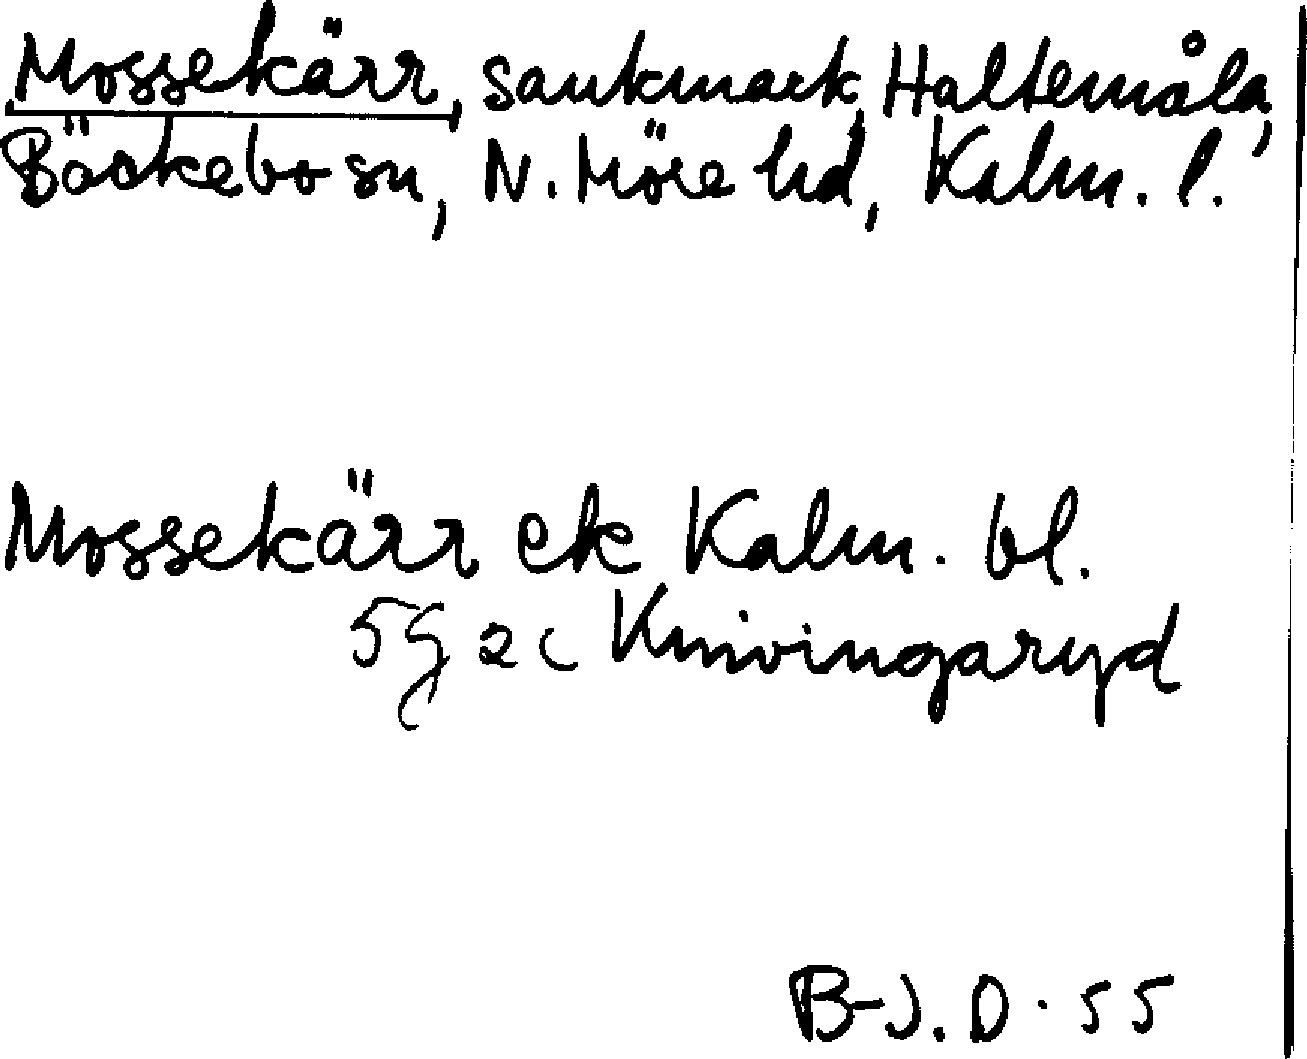 Mossekärr, sankmark, Haltemåla,
Bäckebo sn, N. Möre hd, Kalm. l.
Mossekärr ek Kalm. bl.
5G 2c Knivingaryd
B-J.D. 55